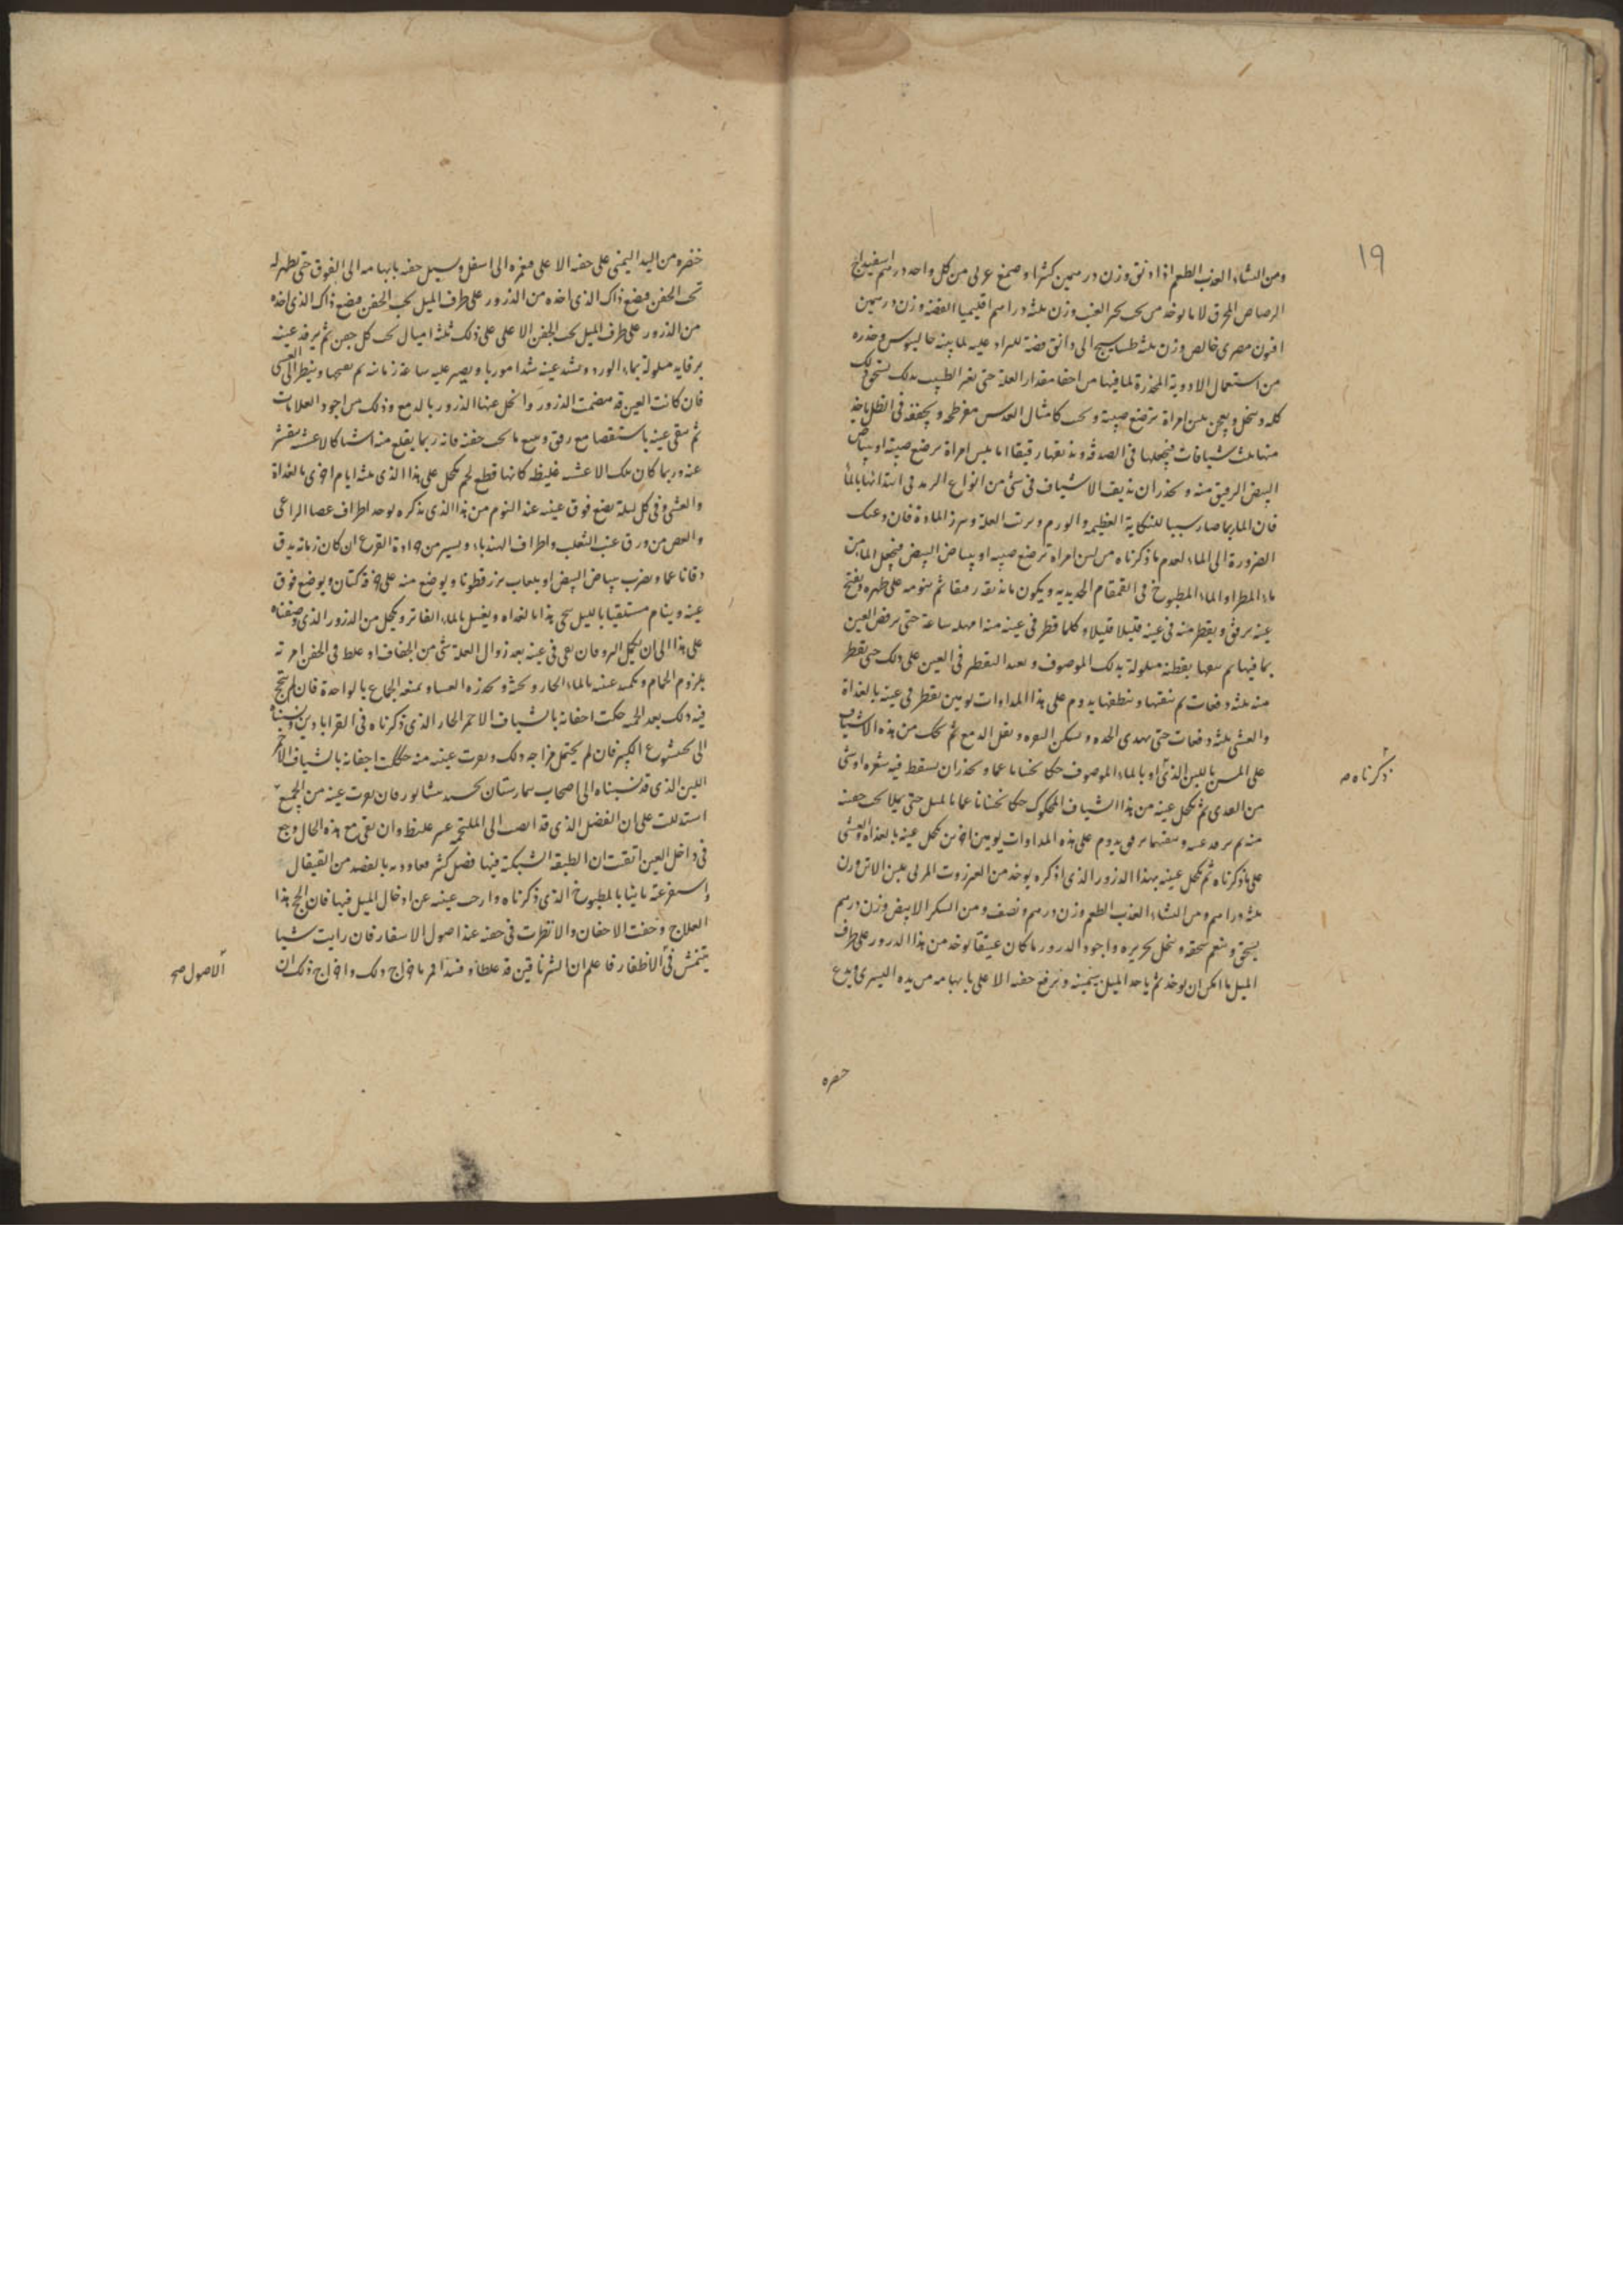 ١٩
ومن النشاء العذب الطعم اذا ذيق وزن درهمين كثيرا وصمغ عربى من كل واحد درهم اسفيداج
الرصاص المحرق لا ما يوخذ من تحت حجر العنب وزن ثلثة دراهم اقليميا الفضة وزن درهمين
افيون مصرى خالص وزن ثلثة طساسيج الى دانق فضة للزاد عليه لما بينه جالينوس وحذره
من استعمال الادوية المخدرة لما فيها من اخفا مقدار العلة حتى يغر الطبيب بذلك يسحق ذلك
كله وينخل ويعجن بلبن امراة ترضع صبية ويحبب كامثال العدس مفرطحه ويجففه فى الظل ياخذ
منها ثلث شيافات فيجعلها فى الصدفة ويذيفها رقيقا اما بلبن امراة ترضع صبية او ببياض
البيض الرقيق منه ويحذر ان يذيف الاشياف فى شى من انواع الرمد فى ابتدائها بالماء
فان الما ربما صار سببا للنكاية العظيمة والورم العلة المادة فان دعتك
الضرورة الى الماء لعدم ما ذكرناه من لبن امراة ترضع صبية او بياض البيض فيجعل الما من
ماء المطر او الماء المطبوخ فى القمقام الحديدية ويكون ما يذيفه رقيقا ثم ينومه على ظهره ويفتح
عينه برفق ويقطر منه فى عينه قليلا قليلا وكلما قطر فى عينه منه امهله ساعة حتى ترفض العين
بما فيها ثم ينقيها بقطنة مبلولة بذلك الموصوف ويعيد التقطير فى العين على ذلك حتى يقطر
منه ثلثة دفعات ثم ينقيها وينظفها يدوم على هذا المداوات يومين يقطر فى عينه بالغداة
والعشى ثلثة دفعات حتى تهدى الحده ويسكن ويقل الدمع ثم تحك من هذه الاشياف
على المسن باللبن الذى او بالماء الموصوف حكا ثخينا ناعما ويحذر ان يسقط فيه شعره او شى
ذكرناه صح
من القذى ثم تكحل عينه من هذا الشياف المحكوك حكا ثخينا ناعما بالميل حتى يملا تحت جفنه
منه ثم يرفد عينه وينقيها برفق يدوم على هذه المداوات يومين اخرين تكحل عينه بالغداه والعشى
على ما ذكرناه ثم تكحل عينه بهذا الذرور الذى اذكره يوخذ من العنزروت المربى بلبن الاتن وزن
ثلثة دراهم ومن النشاء العذب الطعم وزن درهم ونصف ومن السكر الابيض وزن درهم
يسحق وينعم سحقه وينخل بحريره واجود الذرور ما كان عتيقا يوخذ من هذا الذرور على طرف
الميل ما امكن ان يوخذ ثم ياخذ الميل بيمينه ويرفع جفنه الاعلى بابهامه من يده اليسرى ويدع
خنصره
خنصره من اليد اليمنى على جفنه الاعلى فيغمزه الى اسفل ويسيل جفنه بابهامه الى الفوق حتى يظهر له
تحت الجفن فيضع ذاك الذى اخذه من الذرور على طرف الميل تحت الجفن فيضع ذاك الذى اخذه
من الذرور على طرف الميل تحت الجفن الاعلى على ذلك ثلثة اميال تحت كل جفن ثم يرفد عينه
برفايد مبلولة بماء الورد ويشد عينه شدا موربا ويصبر عليه ساعة زمانية ثم يفتحها وينظر الى العين
فان كانت العين قد هضمت الذرور وانحل عنها الذرور بالدمع وذلك من اجود العلامات
ثم ينقى عينه باستقصا مع رفق ما تحت جفنه فانه ربما يقلع منه اشيا كالاغشيه يتقشر
عنه وربما كان تلك الاغشيه غليظه كانها قطع لحم تكحل على هذا الذى ثلثة ايام اخرى بالغداة
والعشى وفى كل ليلة يضع فوق عينه عند النوم من هذا الذى نذكره يوخذ اطراف عصا الراعى
والغض من ورق عنب الثعلب واطراف الهندباء ويسير من جرادة القرع ان كان زمانه يدق
دقا ناعما ويضرب ببياض البيض او بلعاب بزر قطونا ويوضع منه على خرقة كتان ويوضع فوق
عينه وينام مستلقيا بالليل هذا بالغداه ويغسل بالماء الفاتر ويكحل من الذرور الذى وصفناه
على هذا الى ان يكمل البرو فان بقى فى عينه بعد زوال العلة شى من الجفاف او غلظ فى الجفن امرته
بلزوم الحمام وتكميد عينه بالماء الحار وتحذره العشا ويمنعه الجماع بالواحدة فان لم ينجح
فيه ذلك بعد الحمية حككت اجفانه بالشياف الاحمر الحار الذى ذكرناه فى القراباذين ونسبناه
الى بختيشوع الكبير فان لم يحتمل مزاجه ذلك ونفرت عينه منه حككت اجفانه بالشياف الاحمر
اللين الذى قد نسبناه الى اصحاب بيمارستان جنديسابور فان نفرت عينه من الجميع
استدللت على ان الفضل الذى قد انصب الى الملتحمه غير غليظ وان بقى مع هذه الحال وجع
فى داخل العين اتقنت ان الطبقة الشبكية فيها فضل كثير فعاوده بالفصد من القيفال
واستفرغه ثانيا بالمطبوخ الذى ذكرناه وارحت عينه عن ادخال الميل فيها فان انجح هذا
العلاج وخفت الاجفان والا نظرت فى جفنه عند اصول الاشفار فان رايت شيا
يتخمش فى الاظفار فاعلم ان الشرناقين قد غلظا وفسدا فرم اخراج ذلك واخراج ذلك ان
الاصول صح